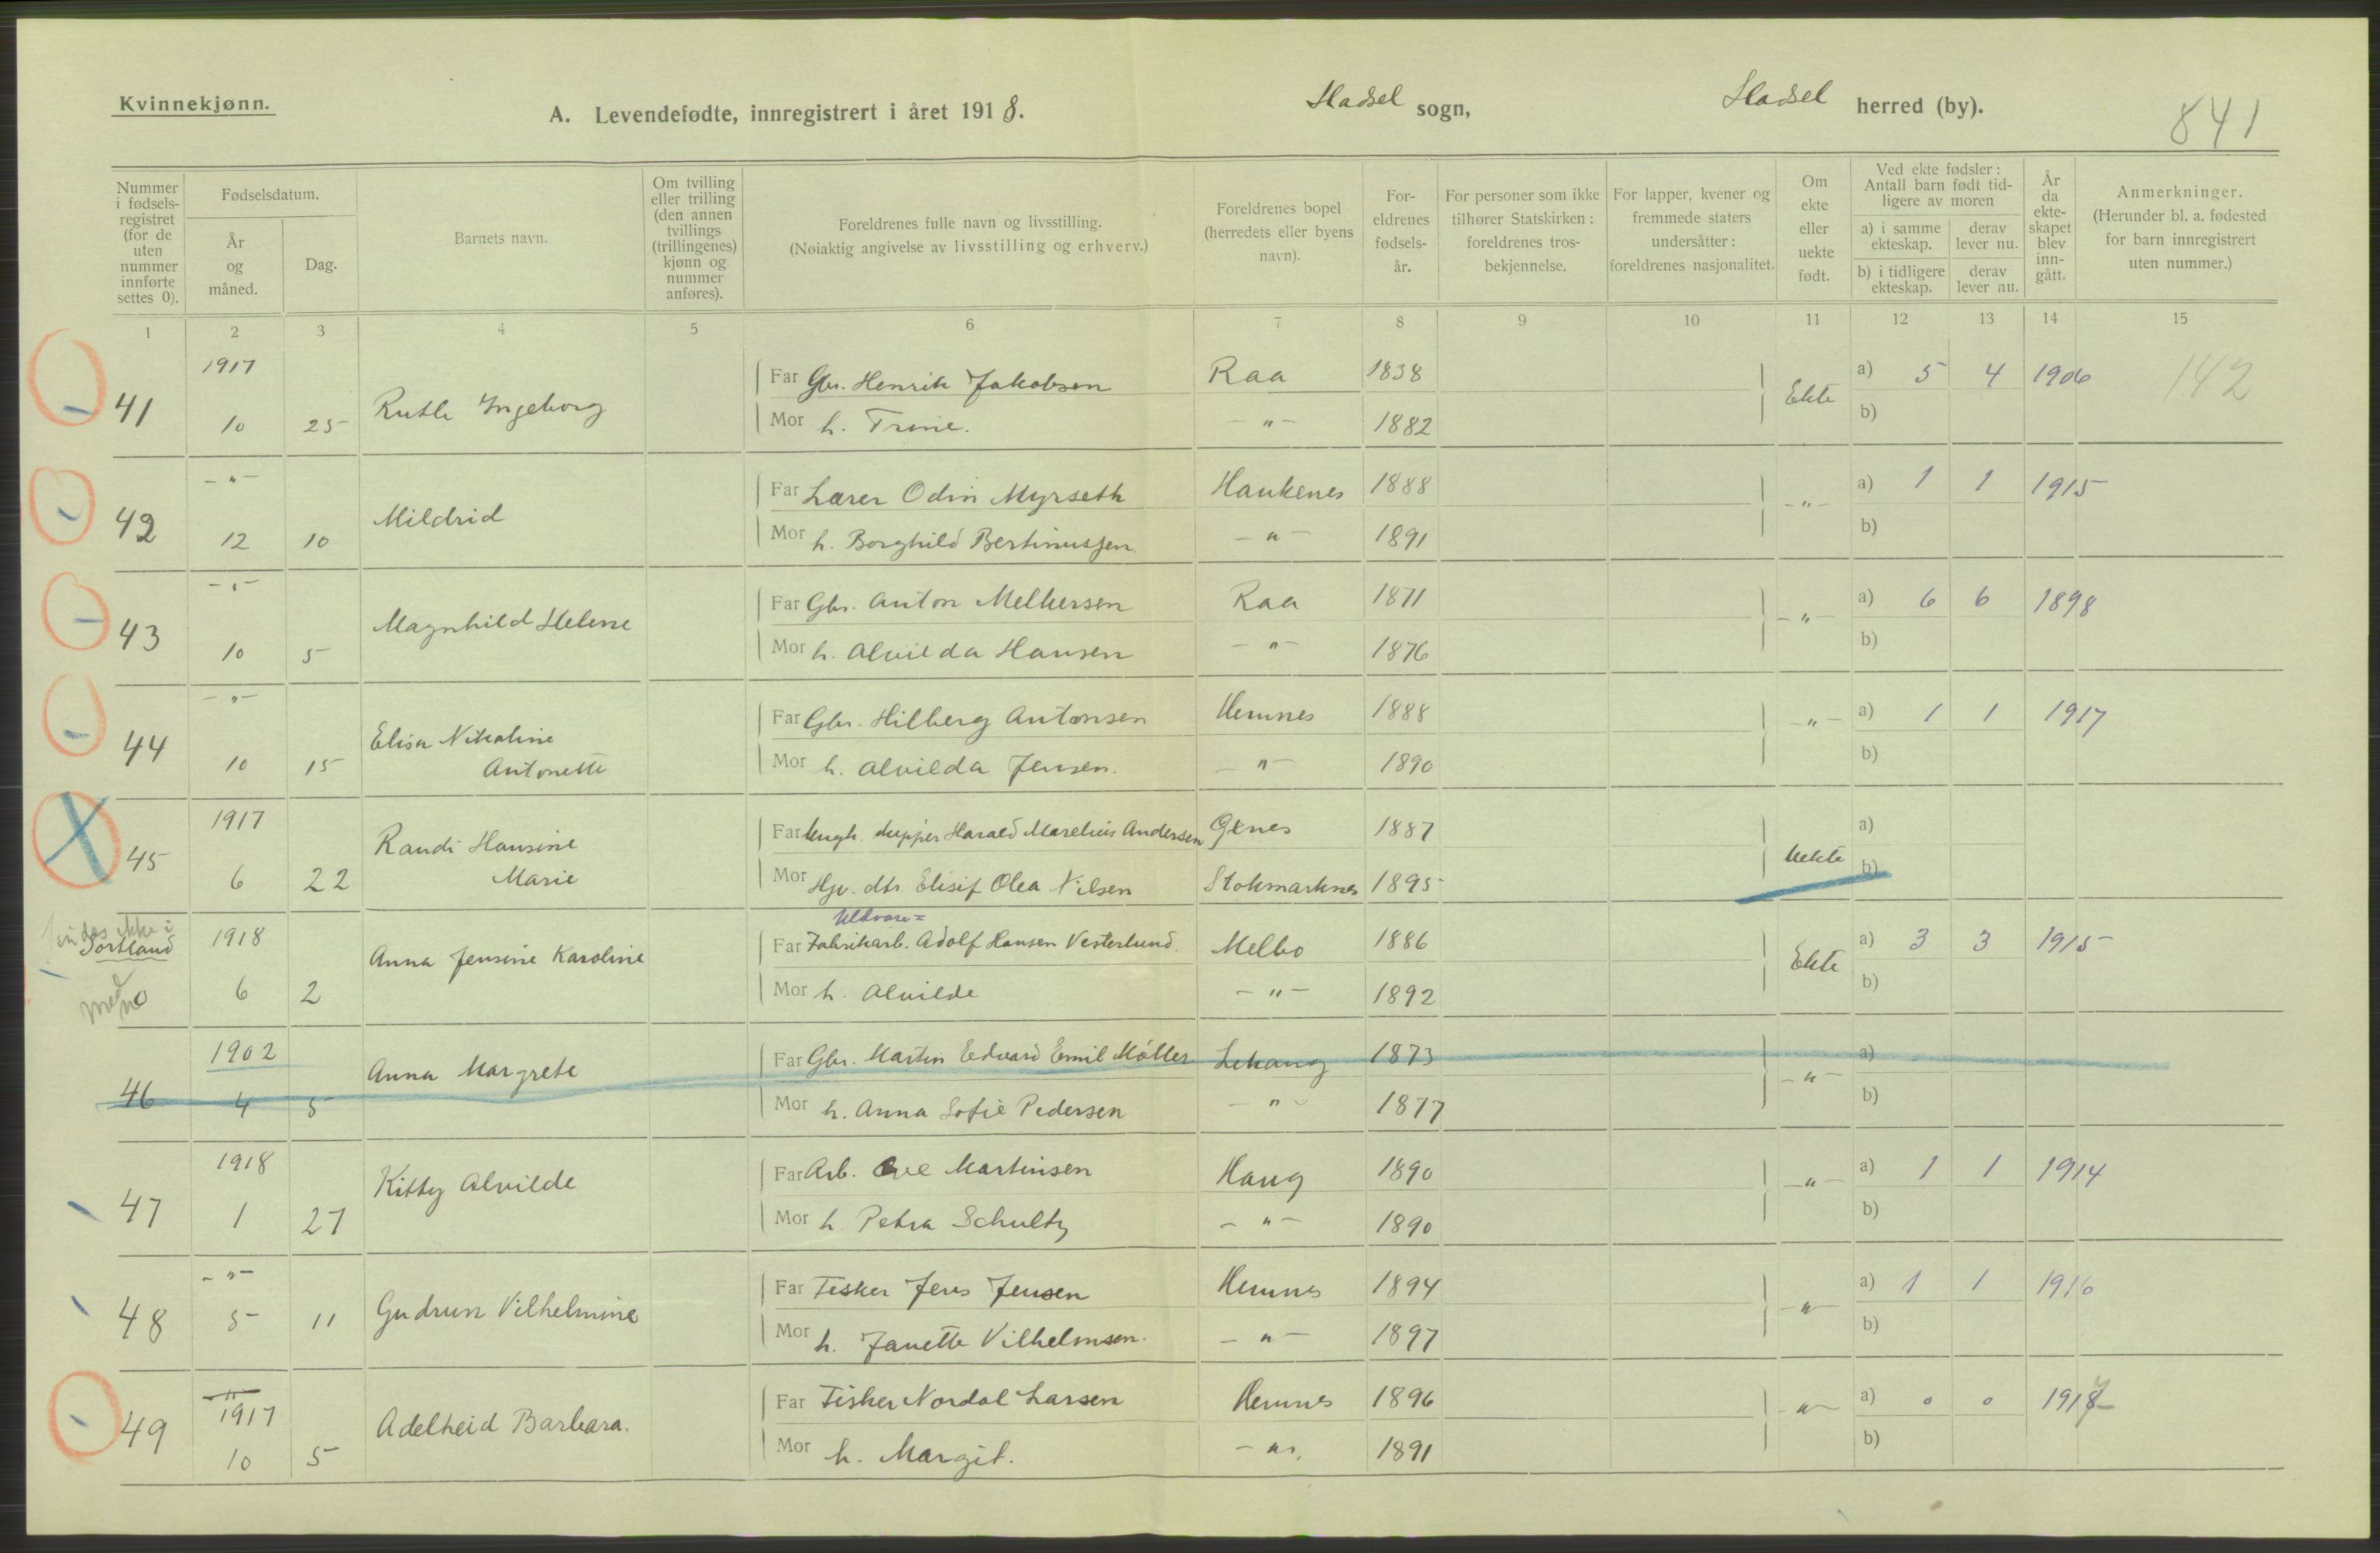 Kvinnekjønn.
A. Levendefødte, innregistrert i året 1918.
Hadsel sogn,
Hadsel herred (by).
841
Nummer i fødsels-registret (for de uten nummer innførte settes 0).
Fødselsdatum.
År og måned.
Dag.
Barnets navn.
Om tvilling eller trilling (den annen tvillings (trillingenes) kjønn og nummer anføres).
Foreldrenes fulle navn og livsstilling.
(Nøiaktig angivelse av livsstilling og erhverv.)
Foreldrenes bopel (herredets eller byens navn).
For-eldrenes fødsels-år.
For personer som ikke tilhører Statskirken: foreldrenes tros-bekjennelse.
For lapper, kvener og fremmede staters undersåtter: foreldrenes nasjonalitet.
Om ekte eller uekte født.
Ved ekte fødsler: Antall barn født tid-ligere av moren
a) i samme ekteskap.
derav lever nu.
b) i tidligere ekteskap.
derav lever nu.
År da ekte-skapet blev inn-gått.
Anmerkninger.
(Herunder bl. a. fødested for barn innregistrert uten nummer.)
1 2 3 4 5 6 7 8 9 10 11 12 13 14 15
1917
Far Gbr. Henrik Jakobsen Raa 1838 a) 5 4 1906 142
41 10 25 Ruth Ingeborg Ekte
Mor h. Trine. -"- 1882 b)
-"-
Far Lærer Odin Myrseth Haukenes 1888 a) 1 1 1915
42 12 10 Mildrid -"-
Mor h. Borghild Bertinussen -"- 1891 b)
-"-
Far Gbr. Anton Melkersen Raa 1871 a) 6 6 1898
43 10 5 Magnhild Helene -"-
Mor h. Alvilda Hansen -"- 1876 b)
-"-
Far Gbr. Hilberg Antonsen Hemnes 1888 a) 1 1 1917
44 10 15 Elisa Nikoline Antonette -"-
Mor h. Alvilda Jensen. -"- 1890 b)
1917
Far ungk. Harald Marelius Andersen 1887 a)
45 6 22 Randi Hansine Marie Uekte
Mor Hjv. dtr Elisif Olea Nilsen Stokmarknes 1895 b)
Findes ikke i
Sortland 1918
Uldvare=
Far Fabrikarb. Adolf Hansen Vesterlund. Melbo 1886 a) 3 3 1915
6 2 Anna Jensine Karoline Ekte
Mor h. Alvilde -"- 1892 b)
1902
Far Gbr. Martin Edvard Emil Möller Lekang 1873 a)
46 4 5 Anna Margrete -"-
Mor h. Anna Sofie Pedersen -"- 1877 b)
1918
Far Arb. Ole Martinsen Haug 1890 a) 1 1 1914
47 1 27 Kitty Alvilde -"-
Mor h Petra Schultz -"- 1890 b)
-"-
Far Fisker Jens Jensen Hemnes 1894 a) 1 1 1916
48 5 11 Gudrun Vilhelmine -"-
Mor h. Janette Vilhelmsen. -"- 1897 b)
-"-
1917
Far Fisker Nordal Larsen Hemnes 1896 a) 0 0 1917
49 10 5 Adelheid Barbara. -"-
Mor h. Margit. -"- 1891 b)